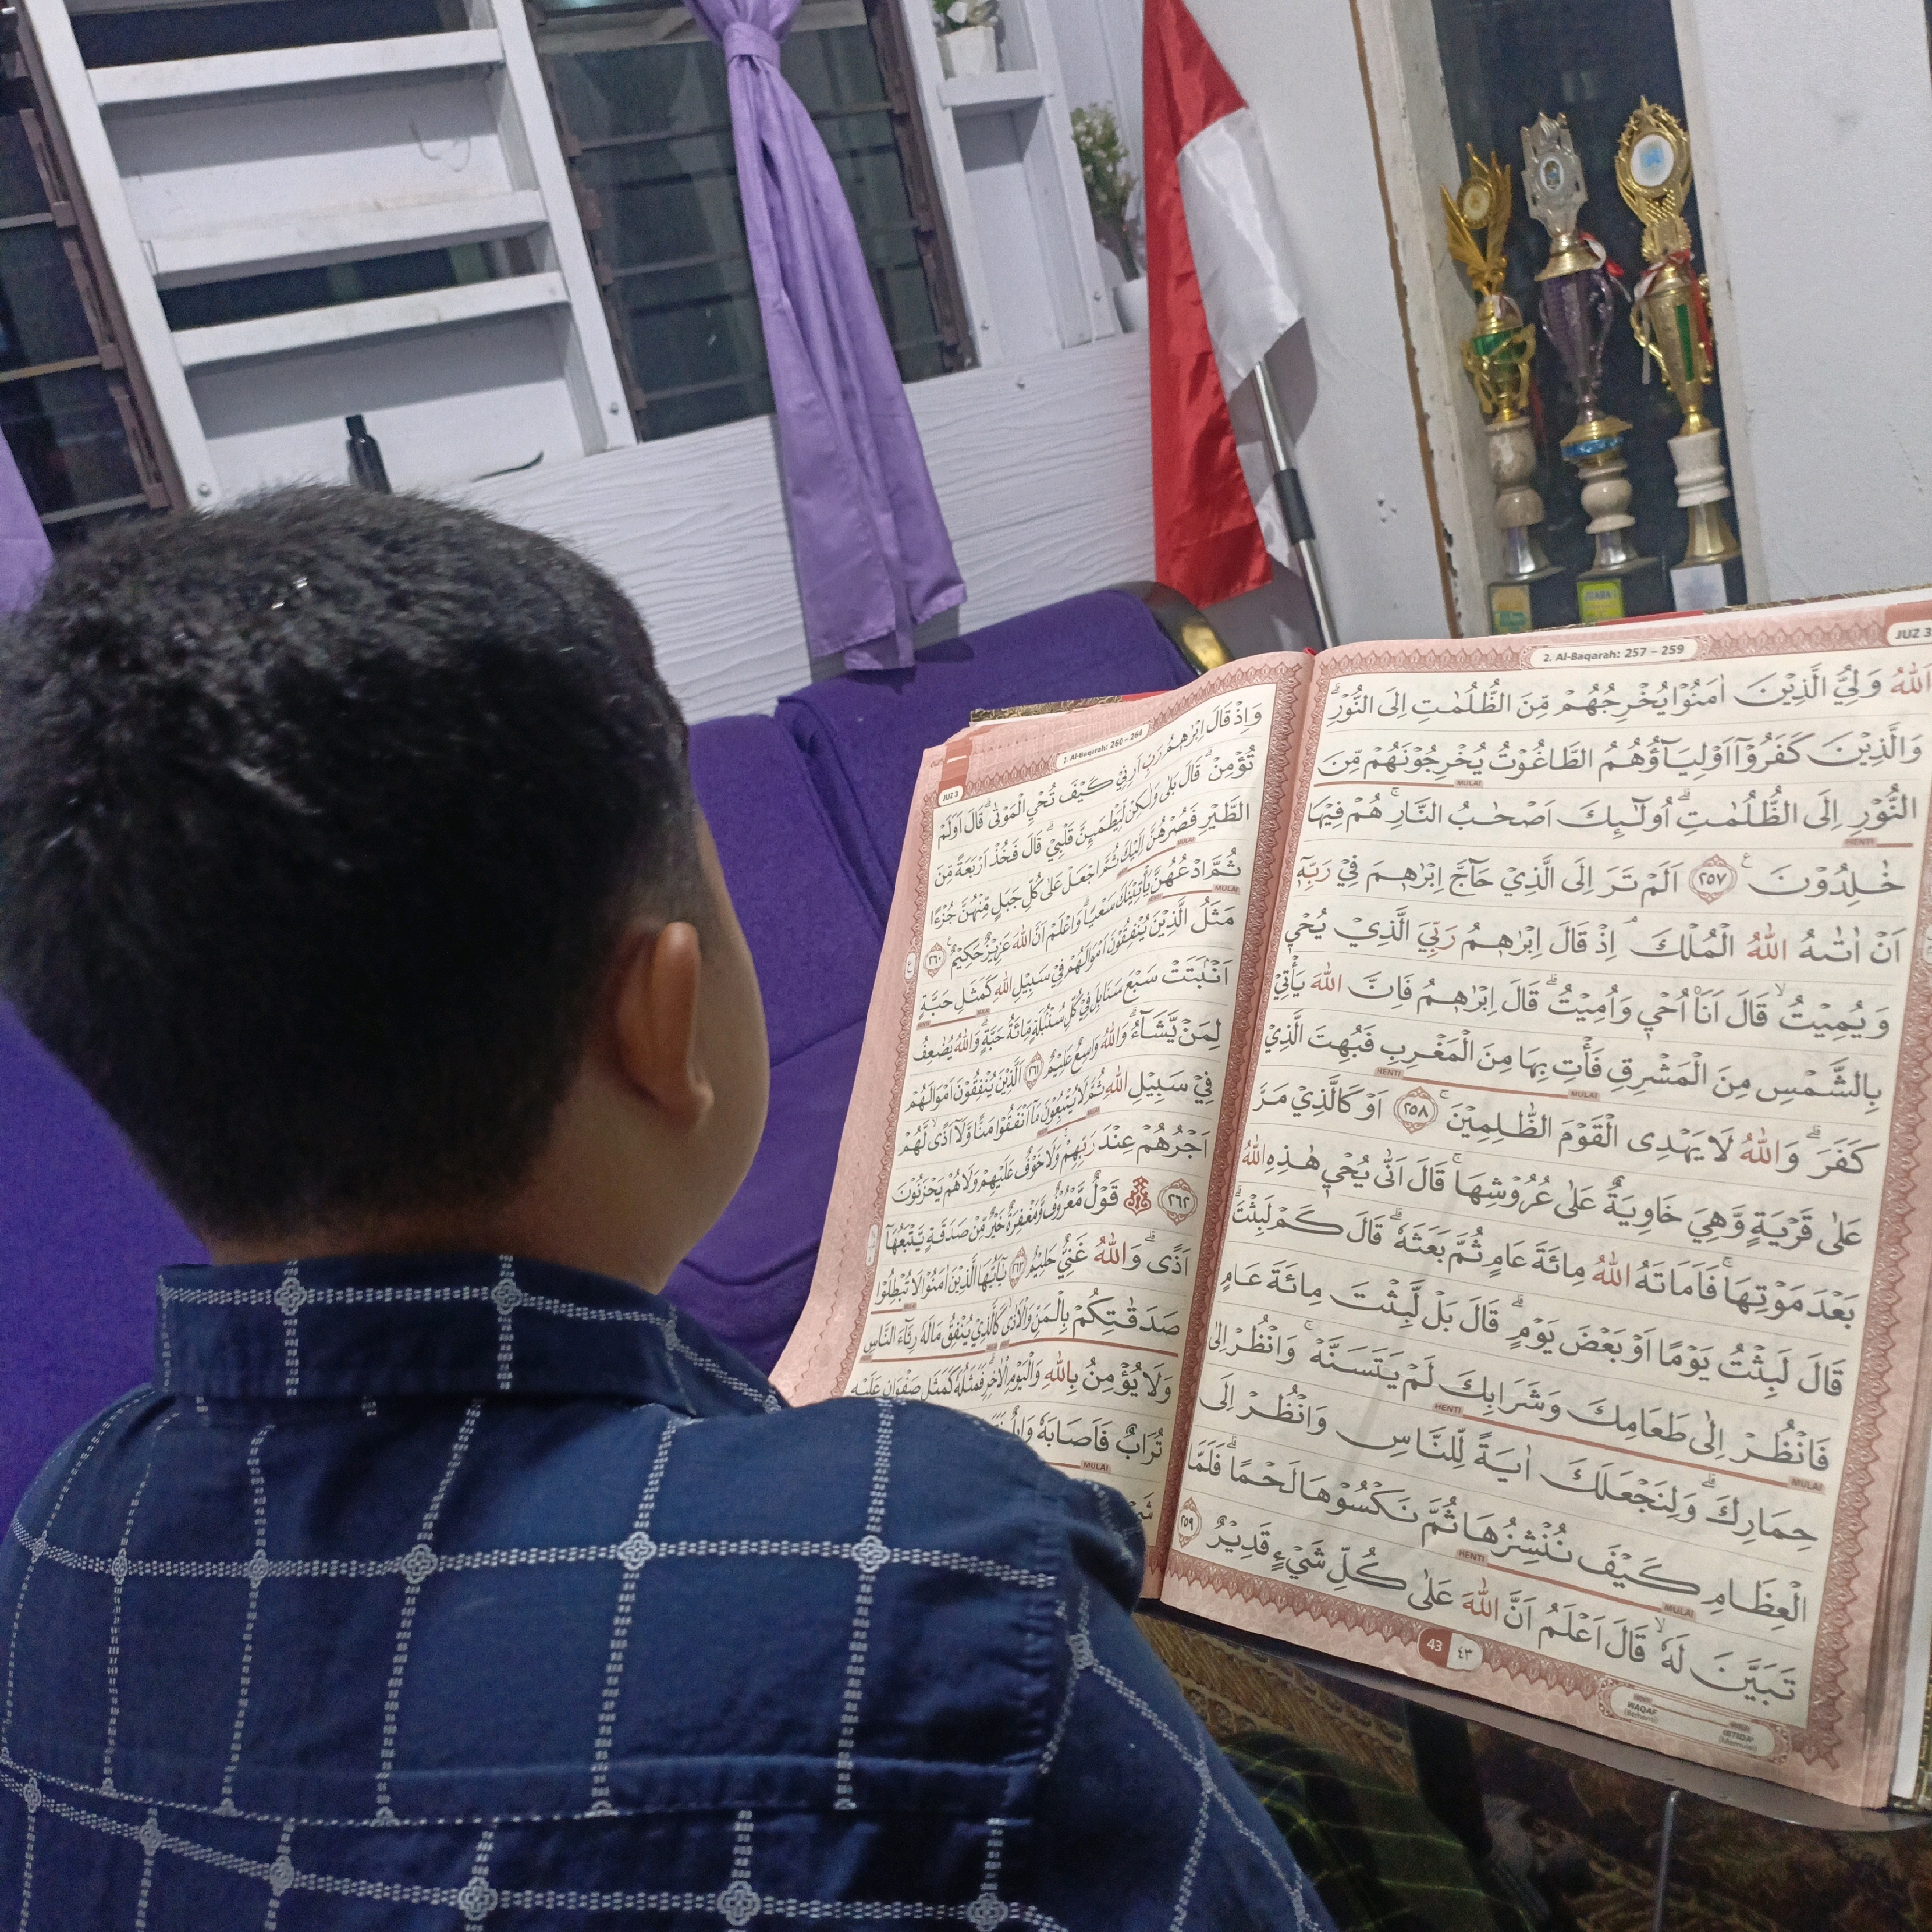 2. Al-Baqarah: 257 – 259
JUZ 3
اَللّٰهُ وَلِيُّ الَّذِيْنَ اٰمَنُوْا يُخْرِجُهُمْ مِّنَ الظُّلُمٰتِ اِلَى النُّوْرِۗ
وَالَّذِيْنَ كَفَرُوْٓا اَوْلِيَاۤؤُهُمُ الطَّاغُوْتُ يُخْرِجُوْنَهُمْ مِّنَ
MULAI
النُّوْرِ اِلَى الظُّلُمٰتِۗ اُولٰۤىِٕكَ اَصْحٰبُ النَّارِۚ هُمْ فِيْهَا
HENTI
خٰلِدُوْنَ ࣖ ٢٥٧ اَلَمْ تَرَ اِلَى الَّذِيْ حَاۤجَّ اِبْرٰهٖمَ فِيْ رَبِّهٖٓ
اَنْ اٰتٰىهُ اللّٰهُ الْمُلْكَۘ اِذْ قَالَ اِبْرٰهٖمُ رَبِّيَ الَّذِيْ يُحْيٖ
وَيُمِيْتُۙ قَالَ اَنَا۠ اُحْيٖ وَاُمِيْتُۗ قَالَ اِبْرٰهٖمُ فَاِنَّ اللّٰهَ يَأْتِيْ
بِالشَّمْسِ مِنَ الْمَشْرِقِ فَأْتِ بِهَا مِنَ الْمَغْرِبِ فَبُهِتَ الَّذِيْ
HENTI MULAI
كَفَرَۗ وَاللّٰهُ لَا يَهْدِى الْقَوْمَ الظّٰلِمِيْنَۚ ٢٥٨ اَوْ كَالَّذِيْ مَرَّ
عَلٰى قَرْيَةٍ وَّهِيَ خَاوِيَةٌ عَلٰى عُرُوْشِهَاۚ قَالَ اَنّٰى يُحْيٖ هٰذِهِ اللّٰهُ
بَعْدَ مَوْتِهَاۚ فَاَمَاتَهُ اللّٰهُ مِائَةَ عَامٍ ثُمَّ بَعَثَهٗۗ قَالَ كَمْ لَبِثْتَۗ
قَالَ لَبِثْتُ يَوْمًا اَوْ بَعْضَ يَوْمٍۗ قَالَ بَلْ لَّبِثْتَ مِائَةَ عَامٍ
فَانْظُرْ اِلٰى طَعَامِكَ وَشَرَابِكَ لَمْ يَتَسَنَّهْۚ وَانْظُرْ اِلٰى
HENTI MULAI
حِمَارِكَۗ وَلِنَجْعَلَكَ اٰيَةً لِّلنَّاسِ وَانْظُرْ اِلَى
الْعِظَامِ كَيْفَ نُنْشِزُهَا ثُمَّ نَكْسُوْهَا لَحْمًاۗ فَلَمَّا
HENTI MULAI
تَبَيَّنَ لَهٗۙ قَالَ اَعْلَمُ اَنَّ اللّٰهَ عَلٰى كُلِّ شَيْءٍ قَدِيْرٌ ٢٥٩
43 ٤٣
WAQAF
(Berhenti)
IBTIDA'
(Memulai)
2. Al-Baqarah: 260 – 264
JUZ 3
وَاِذْ قَالَ اِبْرٰهٖمُ رَبِّ اَرِنِيْ كَيْفَ تُحْيِ الْمَوْتٰىۗ قَالَ اَوَلَمْ
تُؤْمِنْۗ قَالَ بَلٰى وَلٰكِنْ لِّيَطْمَىِٕنَّ قَلْبِيْۗ قَالَ فَخُذْ اَرْبَعَةً مِّنَ
الطَّيْرِ فَصُرْهُنَّ اِلَيْكَ ثُمَّ اجْعَلْ عَلٰى كُلِّ جَبَلٍ مِّنْهُنَّ جُزْءًا
MULAI
ثُمَّ ادْعُهُنَّ يَأْتِيْنَكَ سَعْيًاۗ وَاعْلَمْ اَنَّ اللّٰهَ عَزِيْزٌ حَكِيْمٌ ࣖ ٢٦٠
MULAI
مَثَلُ الَّذِيْنَ يُنْفِقُوْنَ اَمْوَالَهُمْ فِيْ سَبِيْلِ اللّٰهِ كَمَثَلِ حَبَّةٍ
اَنْۢبَتَتْ سَبْعَ سَنَابِلَ فِيْ كُلِّ سُنْۢبُلَةٍ مِّائَةُ حَبَّةٍۗ وَاللّٰهُ يُضٰعِفُ
لِمَنْ يَّشَاۤءُۗ وَاللّٰهُ وَاسِعٌ عَلِيْمٌ ٢٦١ اَلَّذِيْنَ يُنْفِقُوْنَ اَمْوَالَهُمْ
فِيْ سَبِيْلِ اللّٰهِ ثُمَّ لَا يُتْبِعُوْنَ مَآ اَنْفَقُوْا مَنًّا وَّلَآ اَذًىۙ لَّهُمْ
اَجْرُهُمْ عِنْدَ رَبِّهِمْۚ وَلَا خَوْفٌ عَلَيْهِمْ وَلَا هُمْ يَحْزَنُوْنَ
٢٦٢ قَوْلٌ مَّعْرُوْفٌ وَّمَغْفِرَةٌ خَيْرٌ مِّنْ صَدَقَةٍ يَّتْبَعُهَآ
اَذًىۗ وَاللّٰهُ غَنِيٌّ حَلِيْمٌ ٢٦٣ يٰٓاَيُّهَا الَّذِيْنَ اٰمَنُوْا لَا تُبْطِلُوْا
صَدَقٰتِكُمْ بِالْمَنِّ وَالْاَذٰىۙ كَالَّذِيْ يُنْفِقُ مَالَهٗ رِئَاۤءَ النَّاسِ
وَلَا يُؤْمِنُ بِاللّٰهِ وَالْيَوْمِ الْاٰخِرِۗ فَمَثَلُهٗ كَمَثَلِ صَفْوَانٍ عَلَيْهِ
تُرَابٌ فَاَصَابَهٗ
MULAI
JUARA